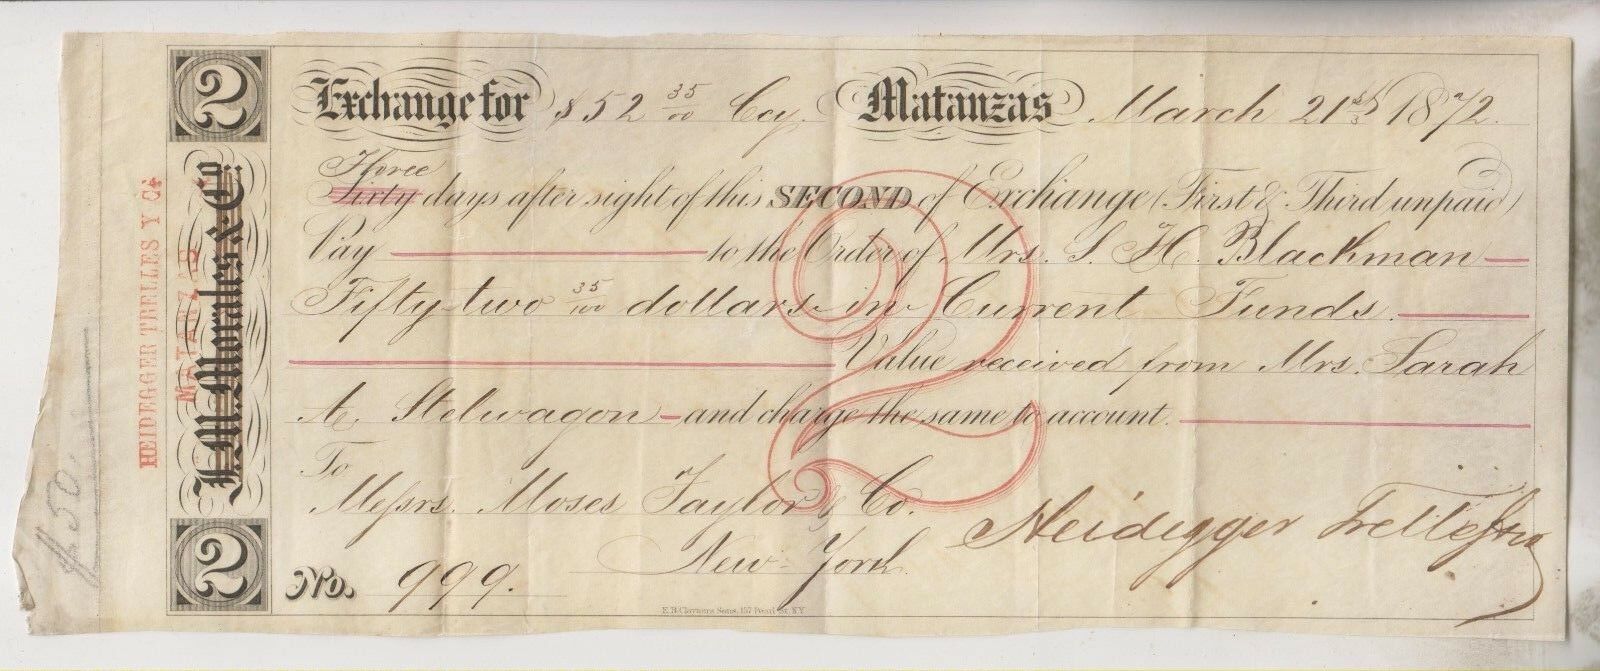 2
HEIDEGGER TRELLES Y Ca
MATANZAS
J. M. Morales & Co.
2
$ .50.
Exchange for $52 35/00 Ccy. Matanzas March 21st 1872.
Three
Sixty days after sight of this SECOND of Exchange (First & Third unpaid)
Pay to the Order of Mrs. S. H. Blackman
Fifty-two 35/100 dollars in Current Funds.
Value received from Mrs. Sarah
A. Stelwagon and charge the same to account.
2
To
Messrs. Moses Taylor & Co.
New-York
Heidegger Trelles
No. 999.
E. B. Clayton's Sons, 157 Pearl St. N.Y.